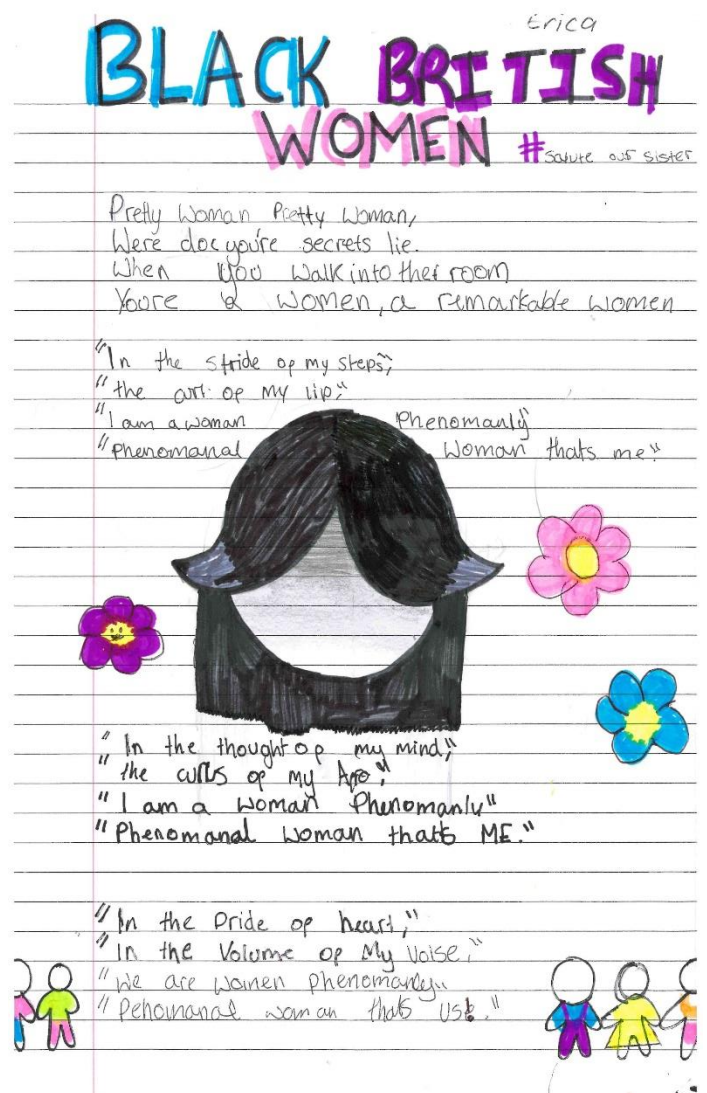 Erica
BLACK BRITISH
WOMEN #Salute our sister
Pretty Woman Pretty Woman,
Were doe you're secrets lie.
When you walk into ther room
Youre a women, a remarkable women
"In the stride of my steps,"
"the curl of my lip,"
"I am a woman Phenomanly"
"Phenomanal Woman thats me."
"In the thought of my mind,"
"the curls of my Afro,"
"I am a Woman Phenomanly"
"Phenomanal Woman thats ME."
"In the Pride of heart,"
"In the Volume of My Voise,"
"We are women phenomanly"
"Pehomanal woman thats US!"